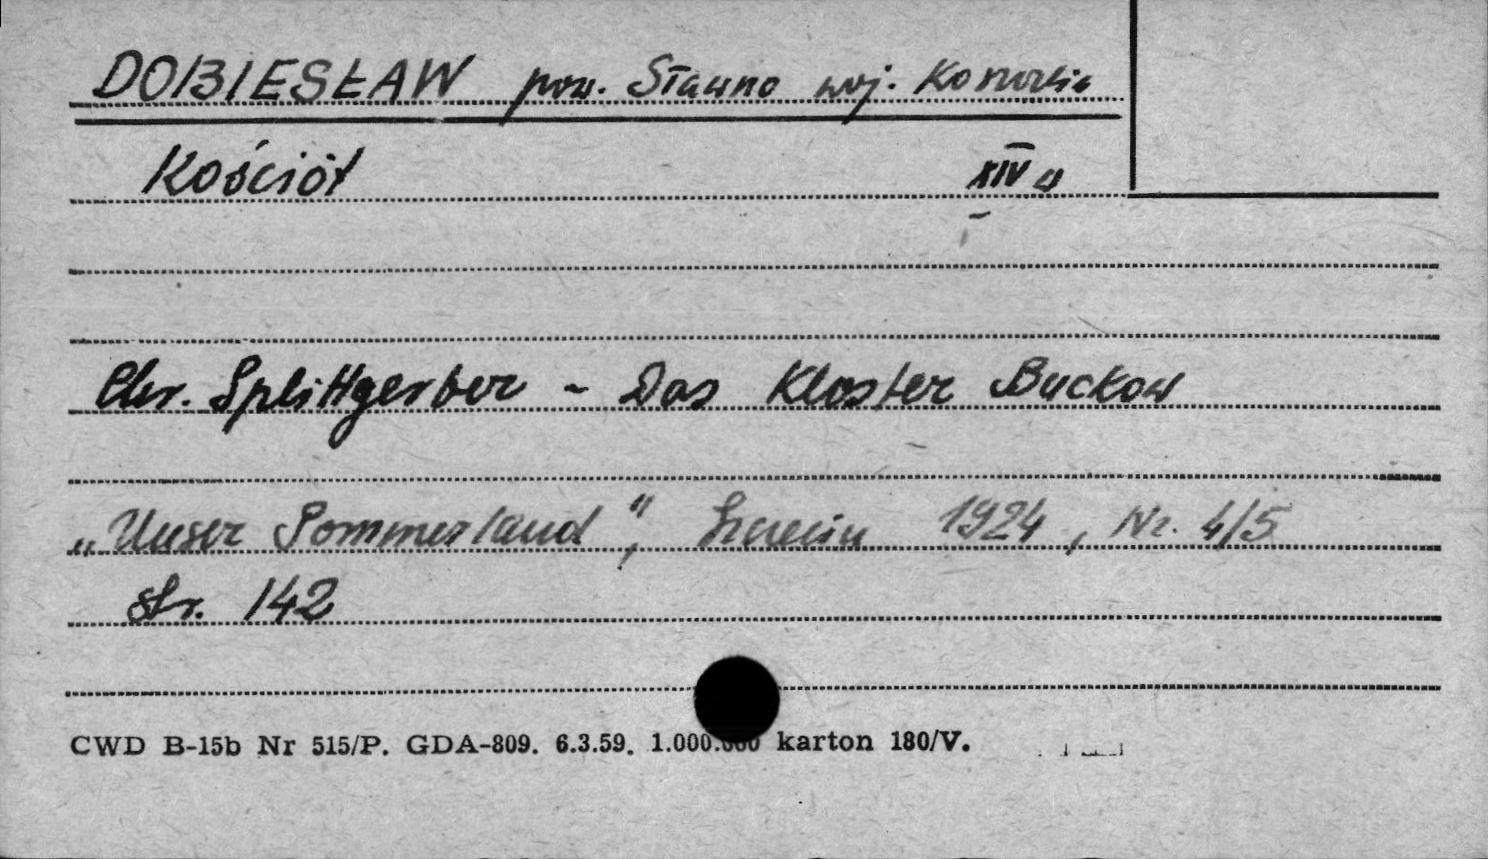 DOBIESŁAW pow. Sławno woj. Koszalin
Kościół XIV w
Chr. Splittgerber - Das Kloster Buckow
„Unser Pommerland", Szczecin 1924, Nr. 4/5
str. 142
CWD B-15b Nr 515/P. GDA-809. 6.3.59. 1.000.000 karton 180/V.